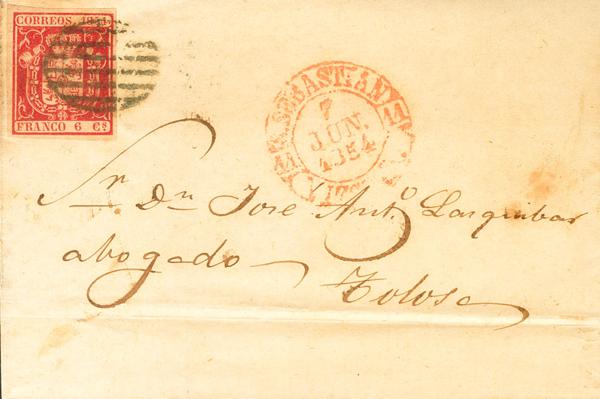 CORREOS. 1854
FRANCO 6 Cs
SEBASTIAN
11 11
7
JUN.
1854
Sr. Dn. José Anto Larquibar
abogado
Tolosa